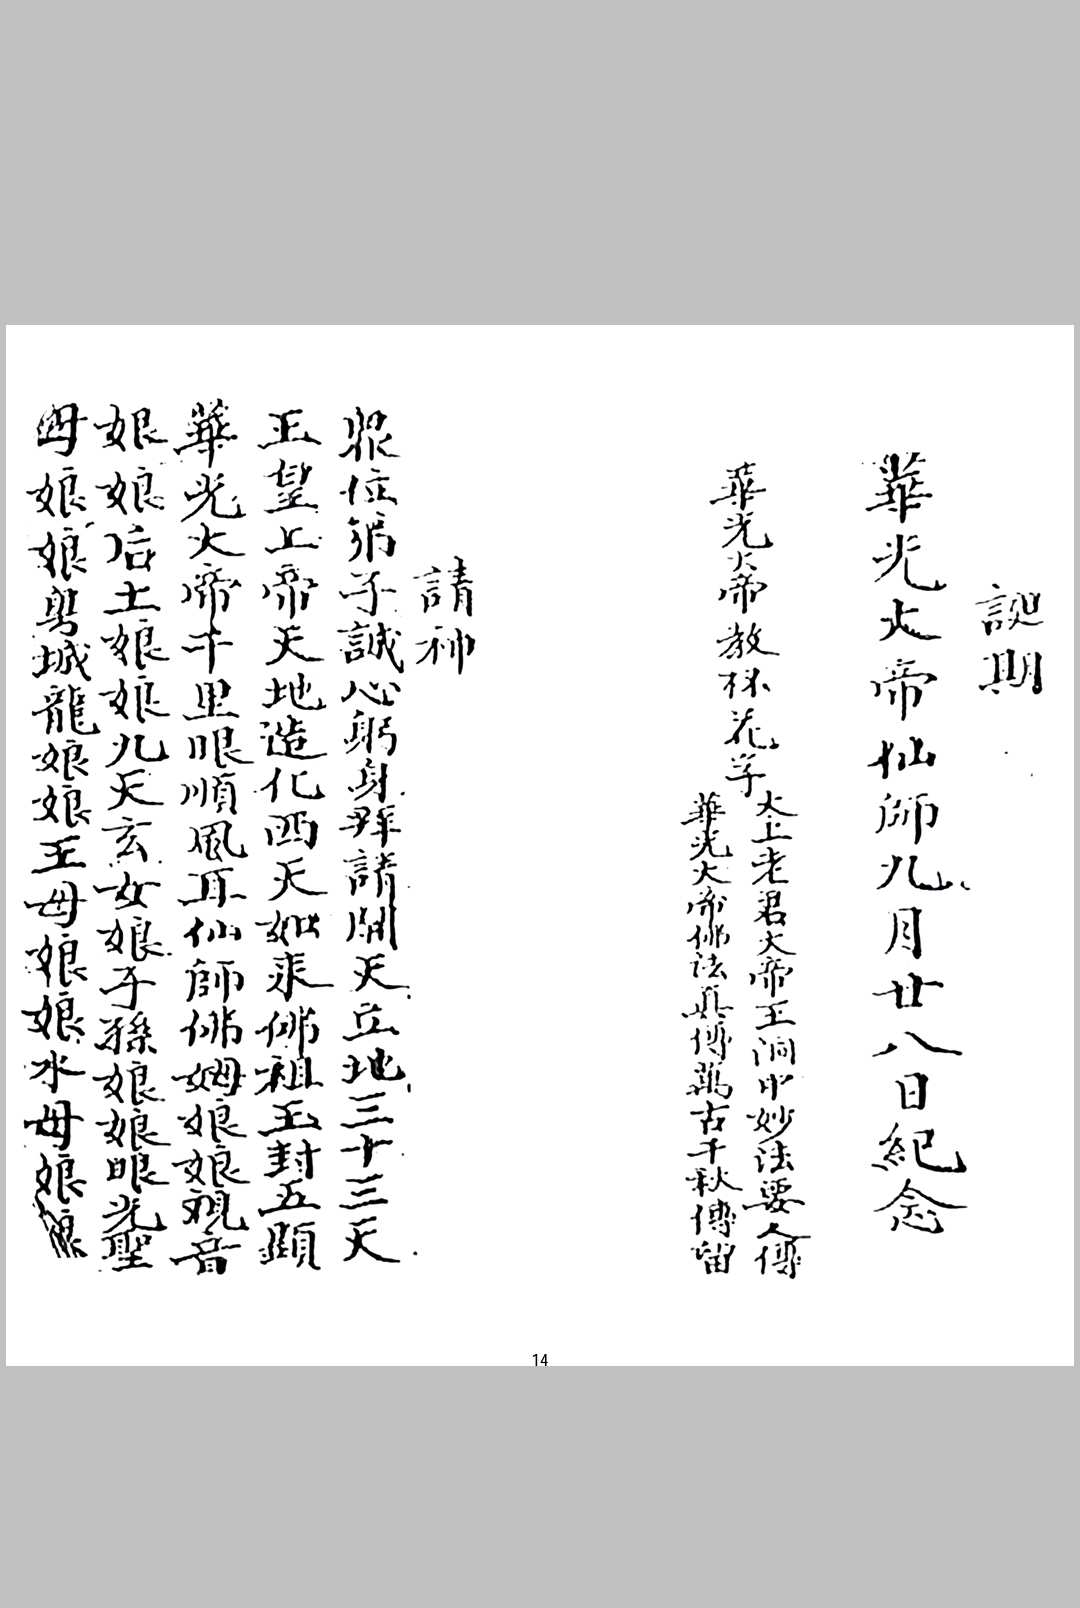 誕期
華光大帝仙師九月廿八日紀念
華光大帝教林花字
太上老君大帝王洞中妙法要人傳
華光大帝佛法真傳萬古千秋傳留
請神
眼位弟子誠心躬身拜請開天立地三十三天
玉皇上帝天地造化西天如來佛祖玉封五顯
華光大帝千里眼順風耳仙師佛姆娘娘觀音
娘娘后土娘娘九天玄女娘子孫娘娘眼光聖
母娘娘 城龍娘娘王母娘娘水母娘娘
14